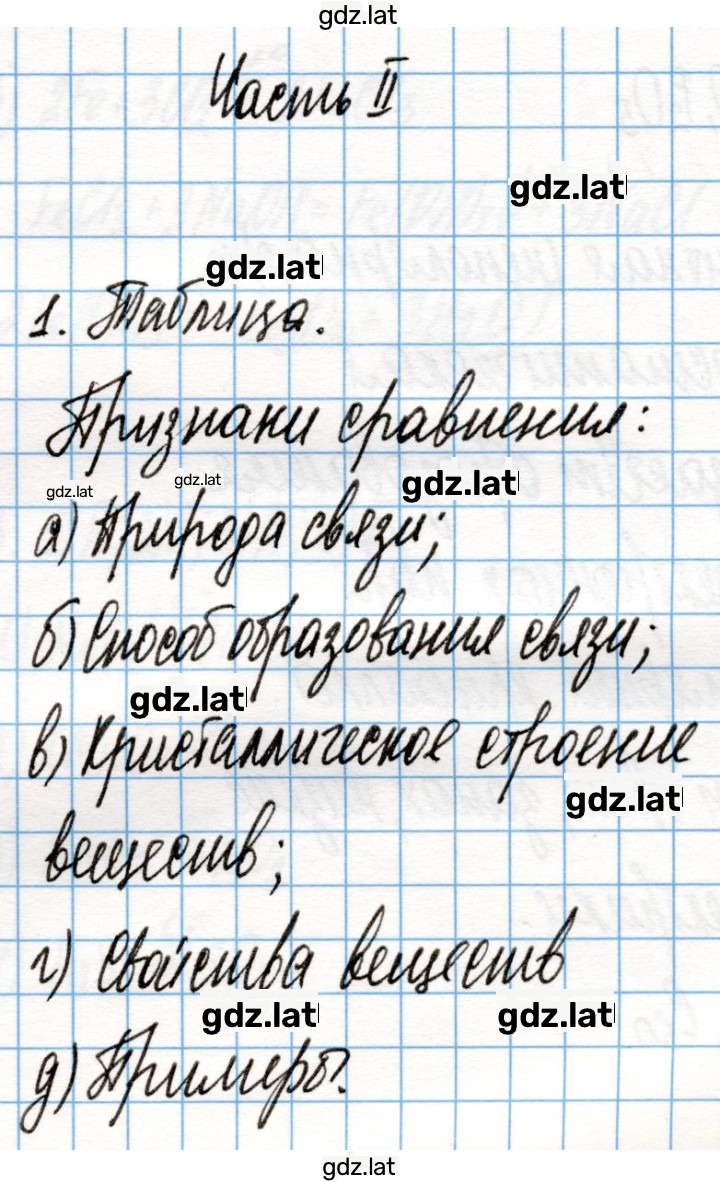 gdz.lat
Часть II
gdz.lat
gdz.lat
1. Таблица.
Признаки сравнения:
gdz.lat gdz.lat gdz.lat
а) Природа связи;
б) Способ образования связи;
gdz.lat
в) Кристаллическое строение
gdz.lat
веществ;
г) Свойства веществ
gdz.lat gdz.lat
д) Примеры.
gdz.lat